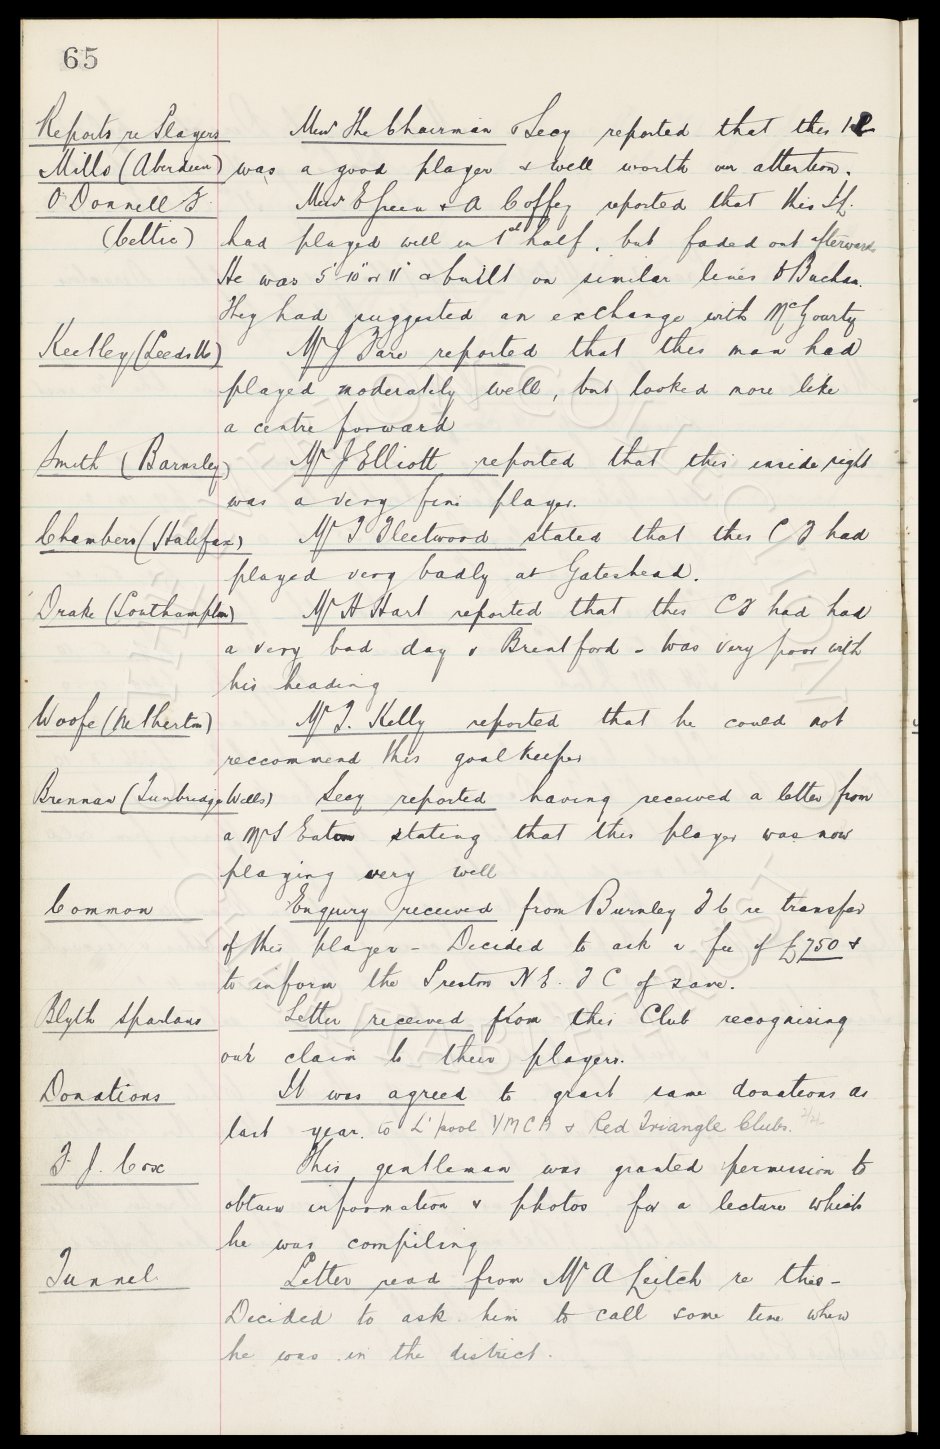 65
Reports re Players Messrs The Chairman & Secy reported that this
Mills (Aberdeen) was a good player & well worth our attention.
O'Donnell F. Messrs E Green & A Coffey reported that this I.L.
(Celtic) had played well in 1st half, but faded out afterwards
He was 5' 10" or 11" & built on similar lines to Buchan.
They had suggested an exchange with McGourty
Keetley (Leeds U) Mr J Fare reported that this man had
played moderately well, but looked more like
a centre forward
Smith (Barnsley) Mr J Elliott reported that this inside right
was a very fine player.
Chambers (Halifax) Mr T Fleetwood stated that this C F had
played very badly at Gateshead.
Drake (Southampton) Mr H Hart reported that this C F had had
a very bad day v Brentford - was very poor with
his heading
Woofe (Netherton) Mr T. Kelly reported that he could not
reccommend this goalkeeper
Brennan (Tunbridge Wells) Secy reported having received a letter from
a Mr S Eaton stating that this player was now
playing very well
Common Enquiry received from Burnley F C re transfer
of this player - Decided to ask a fee of £750 &
to inform the Preston N E. F C of same.
Blyth Spartans Letter received from this Club recognising
our claim to their players.
Donations It was agreed to grant same donations as
last year. to L'pool YMCA & Red Triangle Clubs.
F. J. Cox This gentleman was granted permission to
obtain information & photos for a lecture which
he was compiling
Tunnel Letter read from Mr A Leitch re this -
Decided to ask him to call some time when
he was in the district.